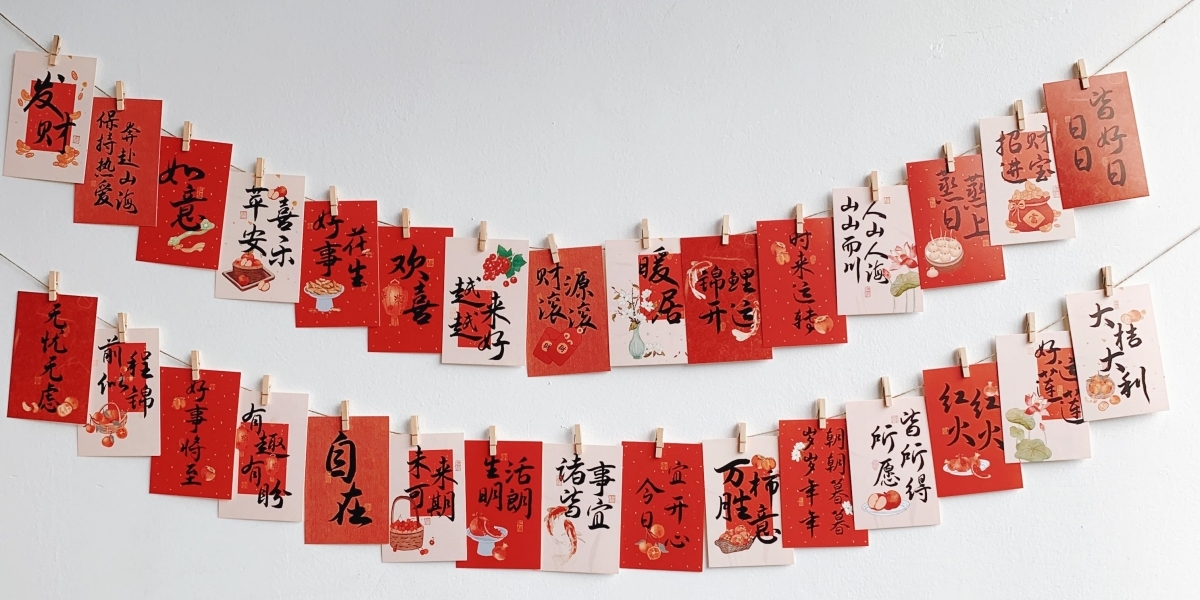 发财
保持热爱
奔赴山海
如意
苹安
喜乐
好事
花生
欢喜
越来
越好
财源
滚滚
暖居
锦鲤
开运
时来运转
人山人海
山山而川
蒸蒸
日上
招财
进宝
日日
皆好日
无忧无虑
前程
似锦
好事将至
有趣
有盼
自在
未来
可期
生活
明朗
诸事
皆宜
今日
宜开心
万柿
胜意
岁岁年年
朝朝暮暮
所愿
皆所得
红红
火火
好运
莲莲
大桔
大利